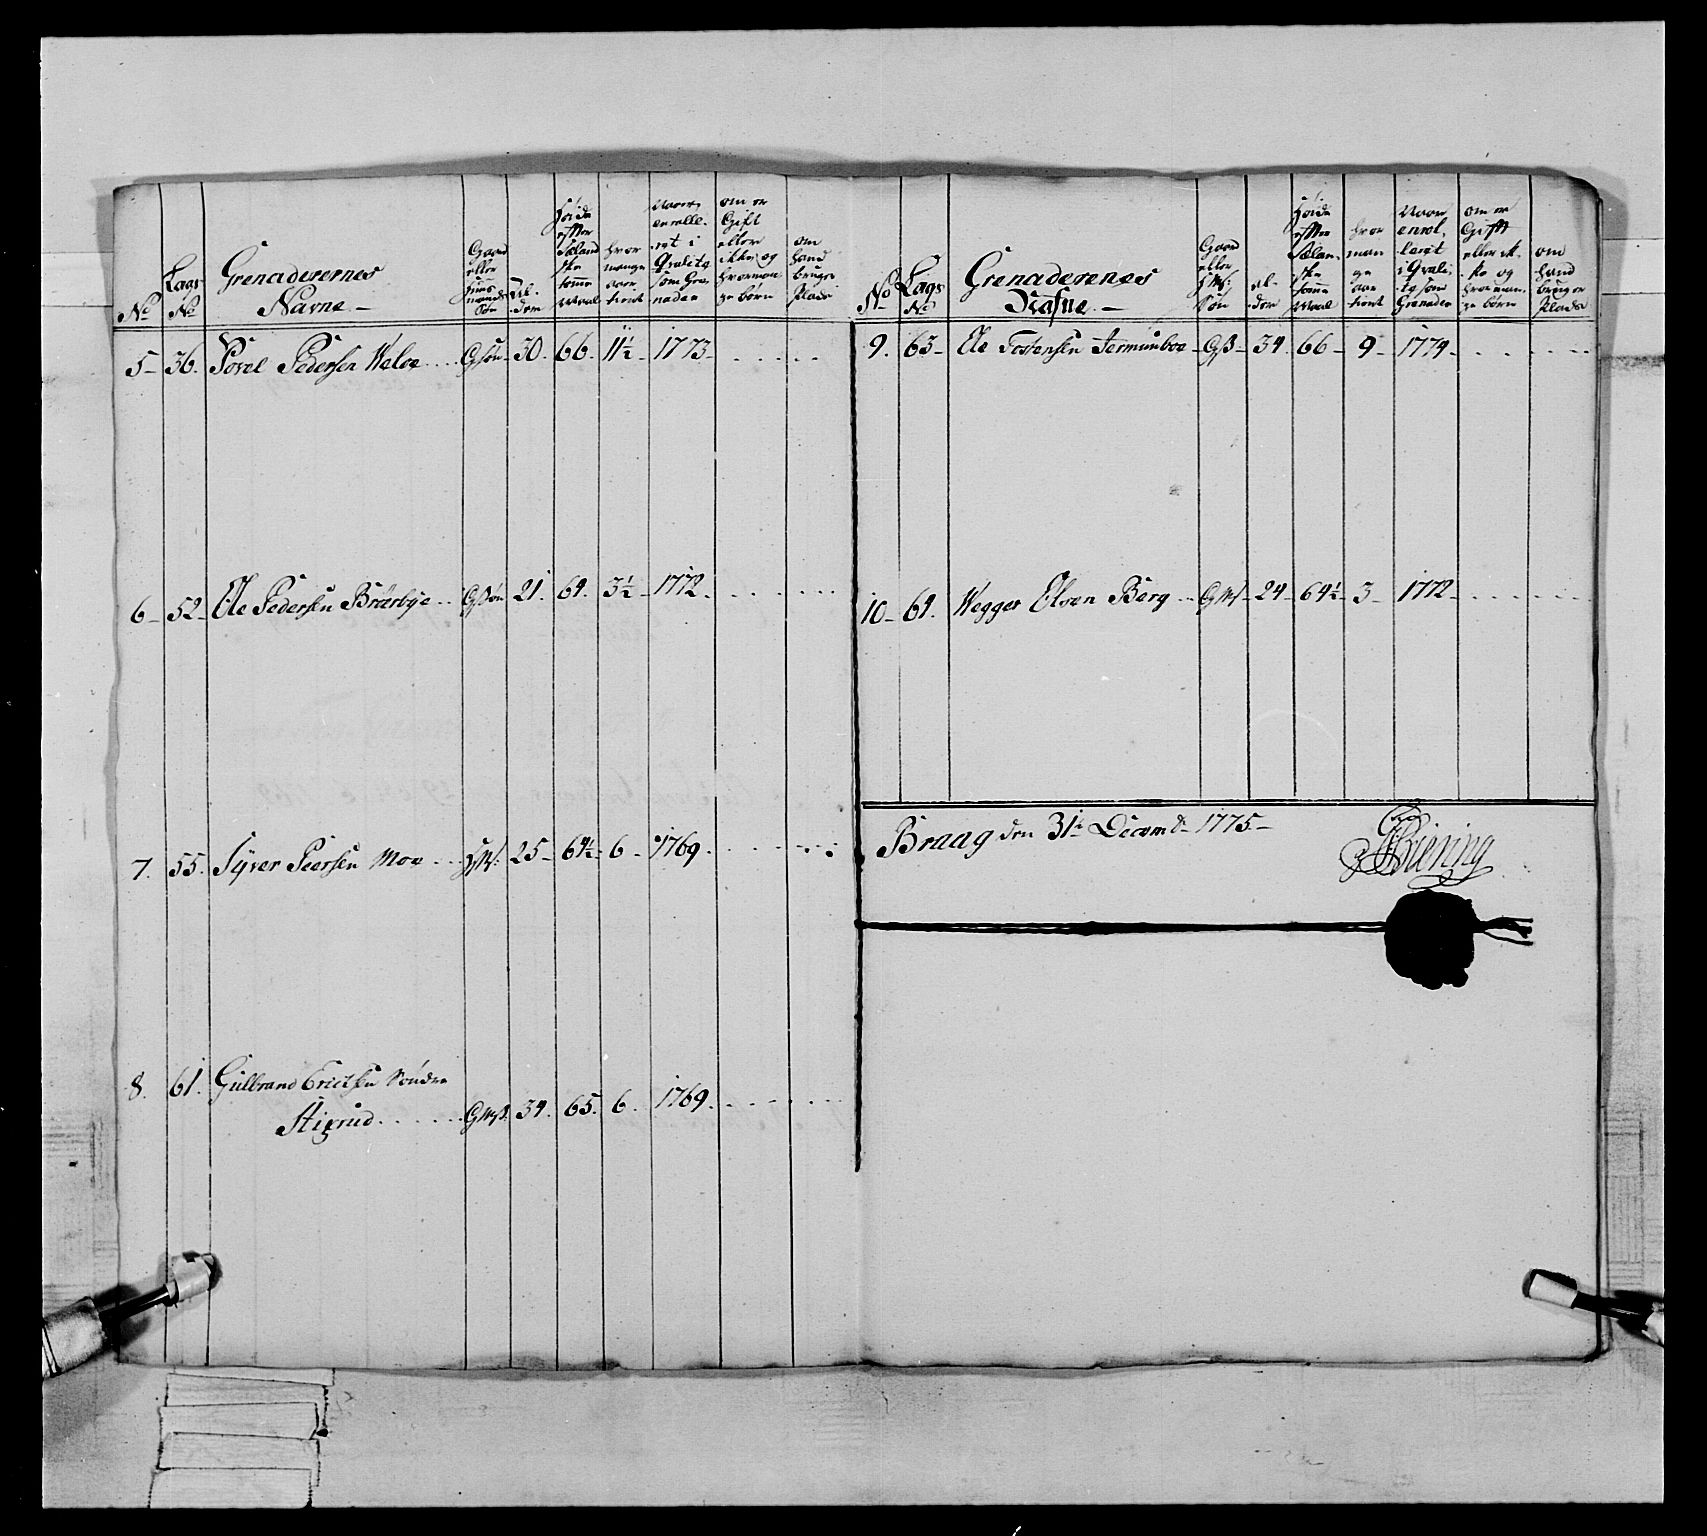 No
Lags No
Grenaderernes
Navne
Gaard eller Huus mands Søn
Al- der
Høide efter Sælandske tomme Maal
hvor mange aar tient
Naar enrolle- ret i Qvalitæ som Gre- nader
om er Gift eller ikke og hvor man- ge børn
om hand bruger Plads
5 36. Povel Pedersen Waloe G Søn 30. 66. 11½ 1773
6 52 Ole Pedersen Brørbye G Søn 21. 64. 3½ 1772.
7. 55. Syver Peersen Moe 25 64½ 6 1769
8. 61. Gulbrand Ericksen Søndre
Stigrud 34. 65. 6. 1769.
No
Lags No
Grenaderenes
Nafne
Gaard eller Søn
al- der
Høide efter Sælan- ske tomme Maal
hvor man- ge aar tient
Naar enrol- lerit i Qvali- té som Grenader
om er Gift eller ik- ke og hvor man- ge børn
om hand bruger Plads
9. 63 Ole Tostensen Jermundboe 34 66 9 1774
10 64. Wegger Olsen Berg 24 64½ 3 1772
Braag den 31te Decemb. 1775